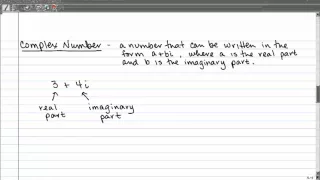 Complex Number - a number that can be written in the
form a+bi, where a is the real part
and b is the imaginary part.
3 + 4i
real imaginary
part part